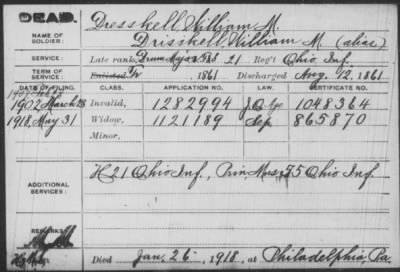 DEAD.
Dresskell, William M.
NAME OF SOLDIER:
Drisskell, William M (alias)
SERVICE:
Late rank, Drum Major F&S 21 Reg't Ohio Inf.
TERM OF SERVICE:
Enlisted 1861 Discharged Aug. 12, 1861
DATE OF FILING. CLASS. APPLICATION NO. LAW. CERTIFICATE NO.
1902 March 28 Invalid, 1282994 1048364
1918, May 31 Widow, 1121189 Sep 865870
Minor,
ADDITIONAL SERVICES:
H 21 Ohio Inf., Prin. Mus. 55 Ohio Inf.
REMARKS:
Died Jan. 26, 1918, at Philadelphia, Pa.